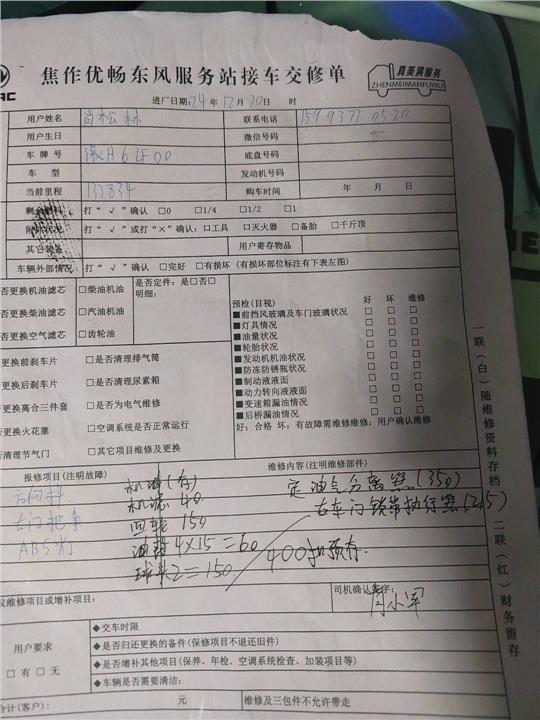 焦作优畅东风服务站接车交修单
真美满服务
ZHENMEIMANFUWU
进厂日期:24年12月20日 时
用户姓名 联系电话 159 9377 0520
用户生日 微信号码
车牌号 豫H6LF00 底盘号码
车型 发动机号码
当前里程 133834 购车时间 年 月 日
打“√”确认 □0 □1/4 □1/2 □1
打“√”或打“×”确认: □工具 □灭火器 □备胎 □千斤顶
其它装备 用户寄存物品
车辆外部情况 打“√”确认 □完好 □有损坏 (有损坏部位标注有下表左图)
否更换机油滤芯 □柴油机油 是否定件: 是□否□
明细:
否更换柴油滤芯 □汽油机油
否更换空气滤芯 □齿轮油
预检(目视) 好 坏 维修
■前挡风玻璃及车门玻璃状况 □ □ □
■灯具情况 □ □ □
■油量状况 □ □ □
■轮胎状况 □ □ □
■发动机机油状况 □ □ □
■防冻防锈瓶状况 □ □ □
■制动液液面 □ □ □
■动力转向液液面 □ □ □
■变速箱漏油情况 □ □ □
■后桥漏油情况 □ □ □
好: 合格 坏: 有故障需维修维修: 用户确认维修
否更换前刹车片 □是否清理排气筒
否更换后刹车片 □是否清理尿素箱
否更换离合三件套 □是否为电气维修
否更换火花塞 □空调系统是否正常运行
否清理节气门 □其它项目维修及更换
报修项目(注明故障) 维修内容(注明维修部件)
机滤 40
150
4×15=60
球头2=150
左门把手
ABS灯
定油气分离器(350)
右车门锁带执行器(215)
议维修项目或增补项目: 司机确认签字:
用户要求
□有 □无
◆交车时限
◆是否归还更换的备件(保修项目不退还旧件)
◆是否增补其他项目(保养、年检、空调系统检查、加装项目等)
◆车辆是否需要清洁:
合计(客户): 元 维修及三包件不允许带走
一联(白)随维修资料存档 二联(红)财务留存